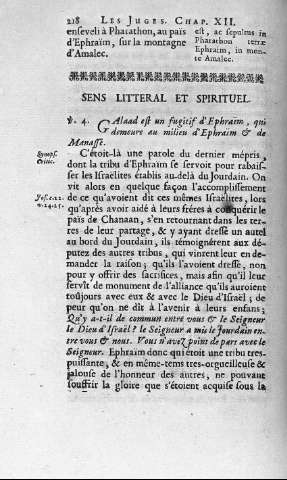 218 LES JUGES. CHAP. XII.
enseveli à Pharathon, au païs
d'Ephraïm, sur la montagne
d'Amalec.
est, ac sepultus in
Pharathon terræ
Ephraim, in mon-
te Amalec.
SENS LITTERAL ET SPIRITUEL.
v. 4. Galaad est un fugitif d'Ephraïm, qui
demeure au milieu d'Ephraïm & de
Manassé.
Synops.
Critic.
C'étoit-là une parole du dernier mépris,
dont la tribu d'Ephraïm se servoit pour rabais-
ser les Israëlites établis au-delà du Jourdain. On
vit alors en quelque façon l'accomplissement
Jos. c. 22.
v. 24. 25.
de ce qu'avoient dit ces mêmes Israëlites, lors
qu'après avoir aidé à leurs fréres à conquérir le
païs de Chanaan, s'en retournant dans les ter-
res de leur partage, & y ayant dressé un autel
au bord du Jourdain, ils témoignérent aux dé-
putez des autres tribus, qui vinrent leur en de-
mander la raison; qu'ils l'avoient dressé, non
pour y offrir des sacrifices, mais afin qu'il leur
servît de monument de l'alliance qu'ils auroient
toûjours avec eux & avec le Dieu d'Israël; de
peur qu'on ne dît à l'avenir à leurs enfans;
Qu'y a-t-il de commun entre vous & le Seigneur
le Dieu d'Israël? le Seigneur a mis le Jourdain en-
tre vous & nous. Vous n'avez point de part avec le
Seigneur. Ephraïm donc qui étoit une tribu tres-
puissante, & en même-tems tres-orgueilleuse &
jalouse de l'honneur des autres, ne pouvant
souffrir la gloire que s'étoient acquise sous la